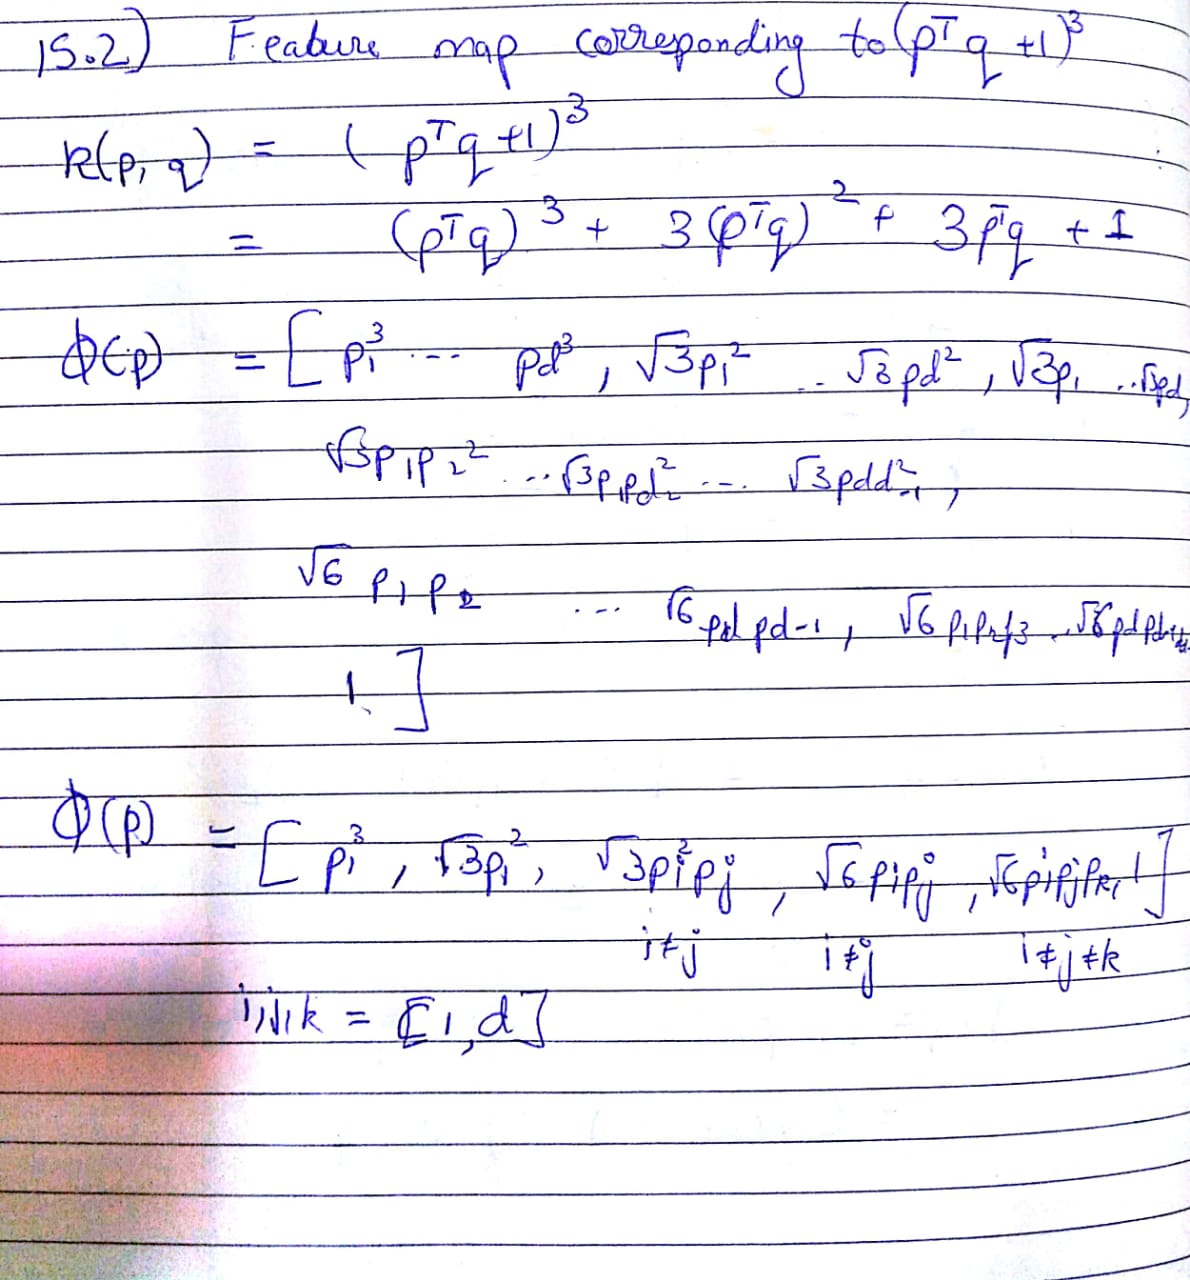 15.2) Feature map corresponding to (pᵀq +1)³
k(p, q) = (pᵀq +1)³
= (pᵀq)³ + 3(pᵀq)² + 3pᵀq + 1
Φ(p) = [p₁³ ... pd³, √3p₁² .. √3pd², √3p₁ ..√3pd,
√3p₁p₂² ..√3p₁pd² ... √3pdd²₋₁,
√6 p₁p₂ ... √6 pd pd-1, √6 p₁p₂p3 ..
1.]
Φ(p) = [p₁³, √3p₁², √3pᵢ²pⱼ, √6pᵢpⱼ, √6pᵢpⱼpₖ, 1]
i≠j i≠j i≠j≠k
i,j,k = [1,d]